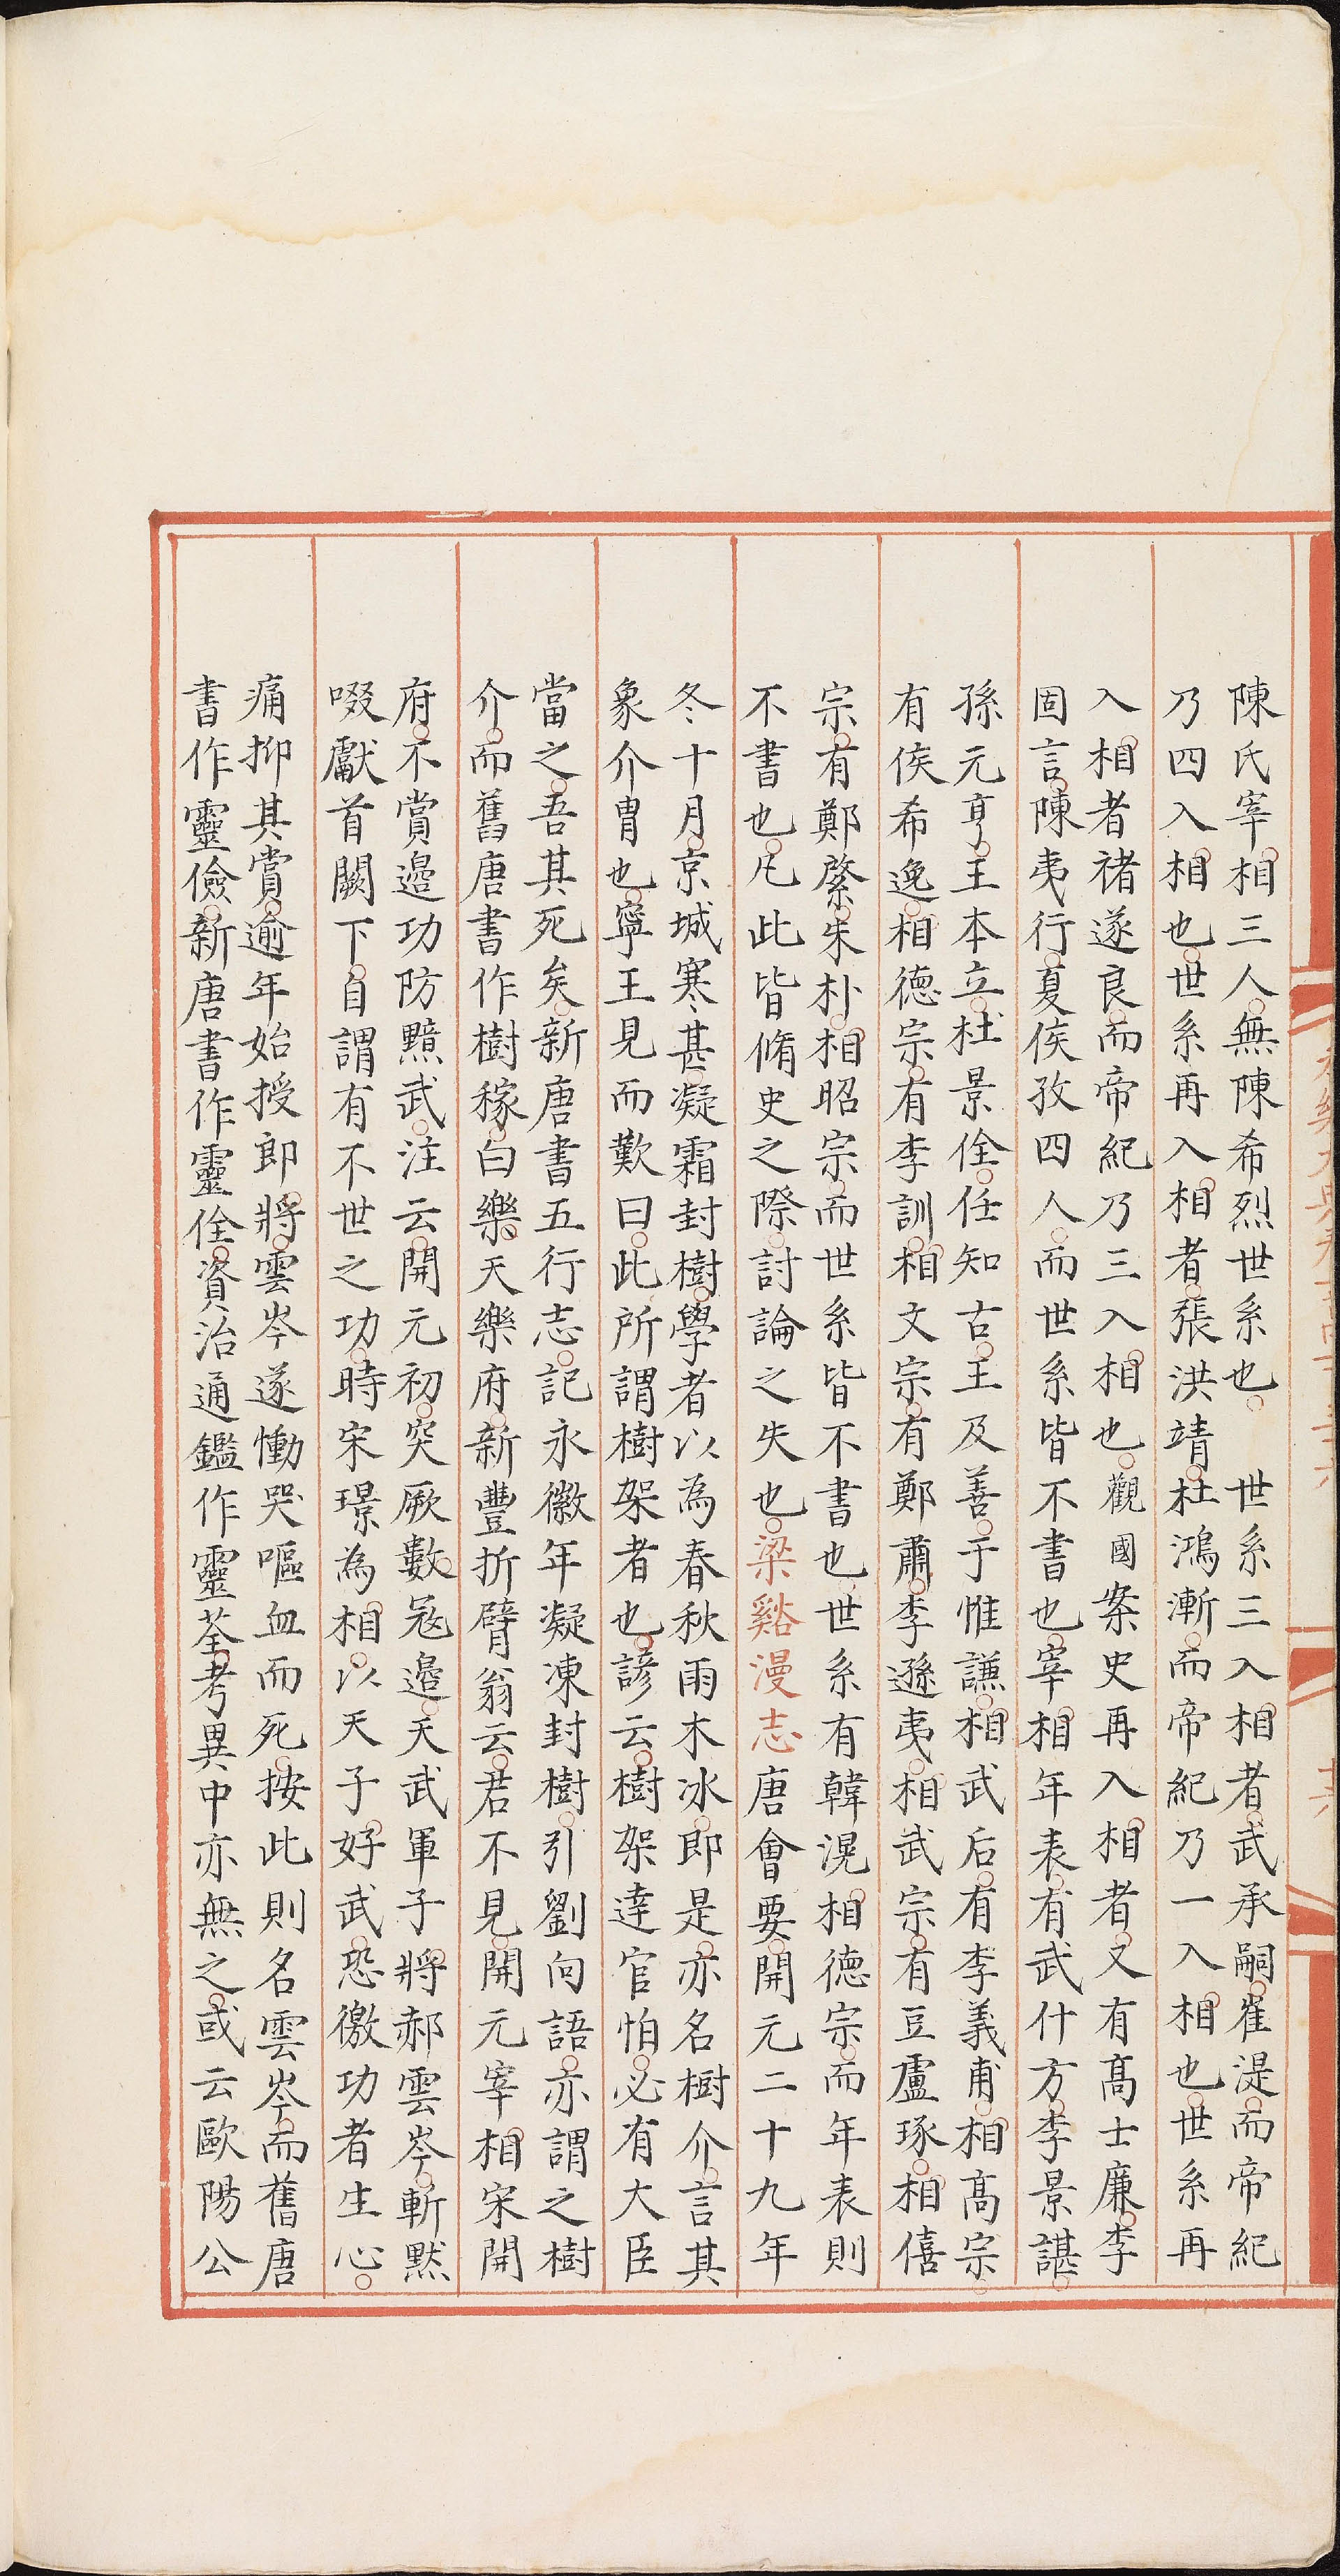 陳氏宰相三人無陳希烈世系也　世系三入相者武承嗣崔湜而帝紀
乃四入相也世系再入相者張洪靖杜鴻漸而帝紀乃一入相也世系再
入相者禇遂良而帝紀乃三入相也觀國案史再入相者又有髙士廉李
固言陳夷行夏侯孜四人而世系皆不書也宰相年表有武什方李景諶
孫元亨王本立杜景佺任知古王及善于惟謙相武后有李義甫相髙宗
有侯希逸相德宗有李訓相文宗有鄭肅李遜夷相武宗有豆盧瑑相僖
宗有鄭綮朱朴相昭宗而世系皆不書也世系有韓滉相德宗而年表則
不書也凡此皆脩史之際討論之失也梁谿漫志唐會要開元二十九年
冬十月京城寒甚凝霜封樹學者以為春秋雨木冰即是亦名樹介言其
象介胄也寧王見而歎曰此所謂樹架者也諺云樹架達官怕必有大臣
當之吾其死矣新唐書五行志記永徽年凝凍封樹引劉向語亦謂之樹
介而舊唐書作樹稼白樂天樂府新豐折臂翁云君不見開元宰相宋開
府不賞邉功防黷武注云開元初突厥數冦邉天武軍子將郝雲岑斬默
啜獻首闕下自謂有不世之功時宋璟為相以天子好武恐徼功者生心
痛抑其賞逾年始授郎將雲岑遂慟哭嘔血而死按此則名雲岑而舊唐
書作靈儉新唐書作靈佺資治通鑑作靈荃考異中亦無之或云歐陽公